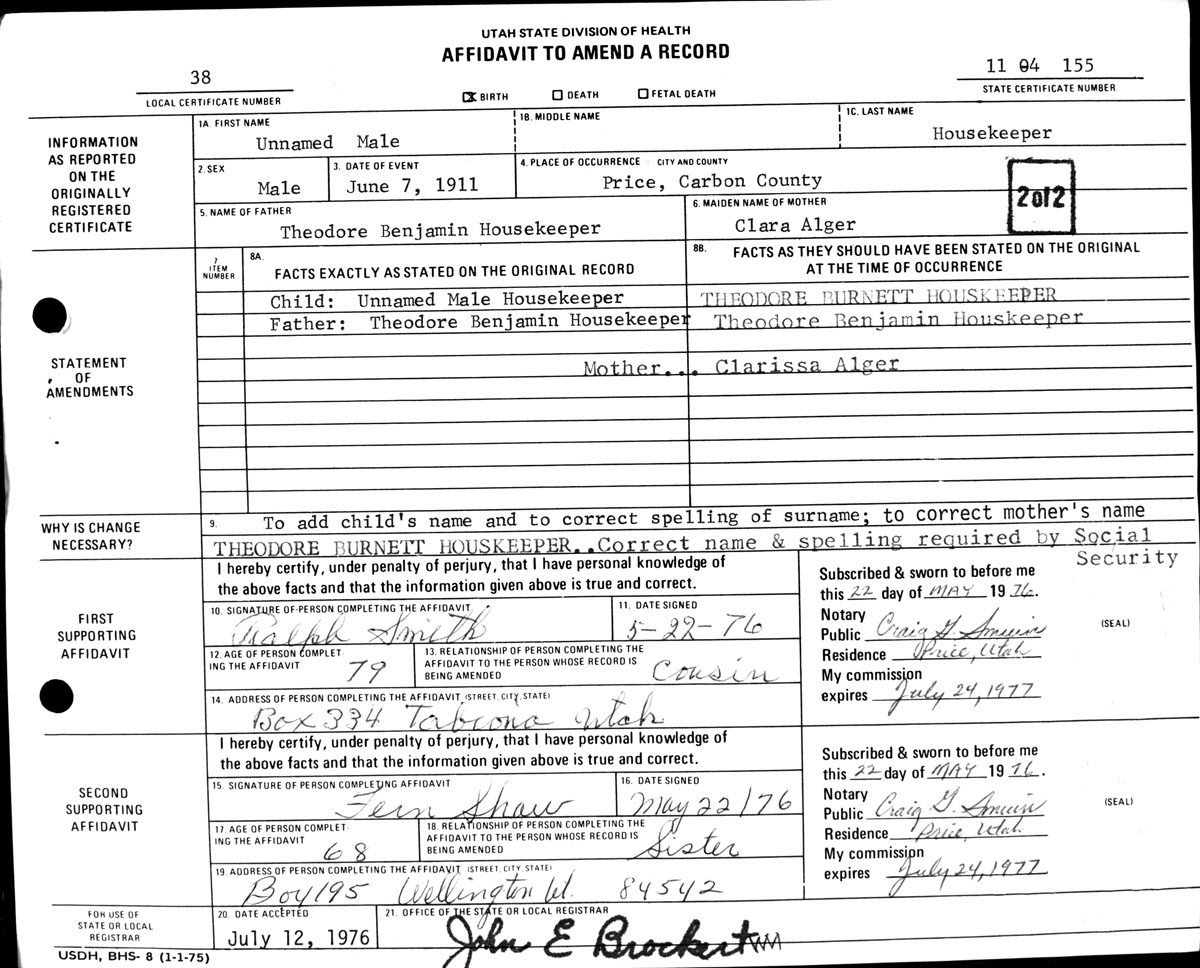 UTAH STATE DIVISION OF HEALTH
AFFIDAVIT TO AMEND A RECORD
38
LOCAL CERTIFICATE NUMBER
☒ BIRTH ☐ DEATH ☐ FETAL DEATH
11 04 155
STATE CERTIFICATE NUMBER
INFORMATION AS REPORTED ON THE ORIGINALLY REGISTERED CERTIFICATE
1A. FIRST NAME
Unnamed Male
1B. MIDDLE NAME
1C. LAST NAME
Housekeeper
2. SEX
Male
3. DATE OF EVENT
June 7, 1911
4. PLACE OF OCCURRENCE CITY AND COUNTY
Price, Carbon County
2 of 2
5. NAME OF FATHER
Theodore Benjamin Housekeeper
6. MAIDEN NAME OF MOTHER
Clara Alger
STATEMENT OF AMENDMENTS
7 ITEM NUMBER
8A. FACTS EXACTLY AS STATED ON THE ORIGINAL RECORD
8B. FACTS AS THEY SHOULD HAVE BEEN STATED ON THE ORIGINAL
AT THE TIME OF OCCURRENCE
Child: Unnamed Male Housekeeper THEODORE BURNETT HOUSKEEPER
Father: Theodore Benjamin Housekeeper Theodore Benjamin Houskeeper
Mother... Clarissa Alger
WHY IS CHANGE NECESSARY?
9. To add child's name and to correct spelling of surname; to correct mother's name
THEODORE BURNETT HOUSKEEPER..Correct name & spelling required by Social
Security
FIRST SUPPORTING AFFIDAVIT
I hereby certify, under penalty of perjury, that I have personal knowledge of
the above facts and that the information given above is true and correct.
10. SIGNATURE OF PERSON COMPLETING THE AFFIDAVIT
Ralph Smith
11. DATE SIGNED
5-22-76
12. AGE OF PERSON COMPLETING THE AFFIDAVIT
79
13. RELATIONSHIP OF PERSON COMPLETING THE
AFFIDAVIT TO THE PERSON WHOSE RECORD IS
BEING AMENDED
Cousin
14. ADDRESS OF PERSON COMPLETING THE AFFIDAVIT (STREET, CITY, STATE)
Box 334 Tabiona Utah
Subscribed & sworn to before me
this 22 day of MAY 1976.
Notary
Public Craig G. Smuin
Residence Price, Utah
My commission
expires July 24, 1977
(SEAL)
SECOND SUPPORTING AFFIDAVIT
I hereby certify, under penalty of perjury, that I have personal knowledge of
the above facts and that the information given above is true and correct.
15. SIGNATURE OF PERSON COMPLETING AFFIDAVIT
Fern Shaw
16. DATE SIGNED
May 22/76
17. AGE OF PERSON COMPLETING THE AFFIDAVIT
68
18. RELATIONSHIP OF PERSON COMPLETING THE
AFFIDAVIT TO THE PERSON WHOSE RECORD IS
BEING AMENDED
Sister
19. ADDRESS OF PERSON COMPLETING THE AFFIDAVIT (STREET, CITY, STATE)
Box 195 Wellington Ut. 84542
Subscribed & sworn to before me
this 22 day of MAY 1976.
Notary
Public Craig G. Smuin
Residence Price, Utah
My commission
expires July 24, 1977
(SEAL)
FOR USE OF STATE OR LOCAL REGISTRAR
20. DATE ACCEPTED
July 12, 1976
21. OFFICE OF THE STATE OR LOCAL REGISTRAR
John E Brockert
USDH, BHS- 8 (1-1-75)